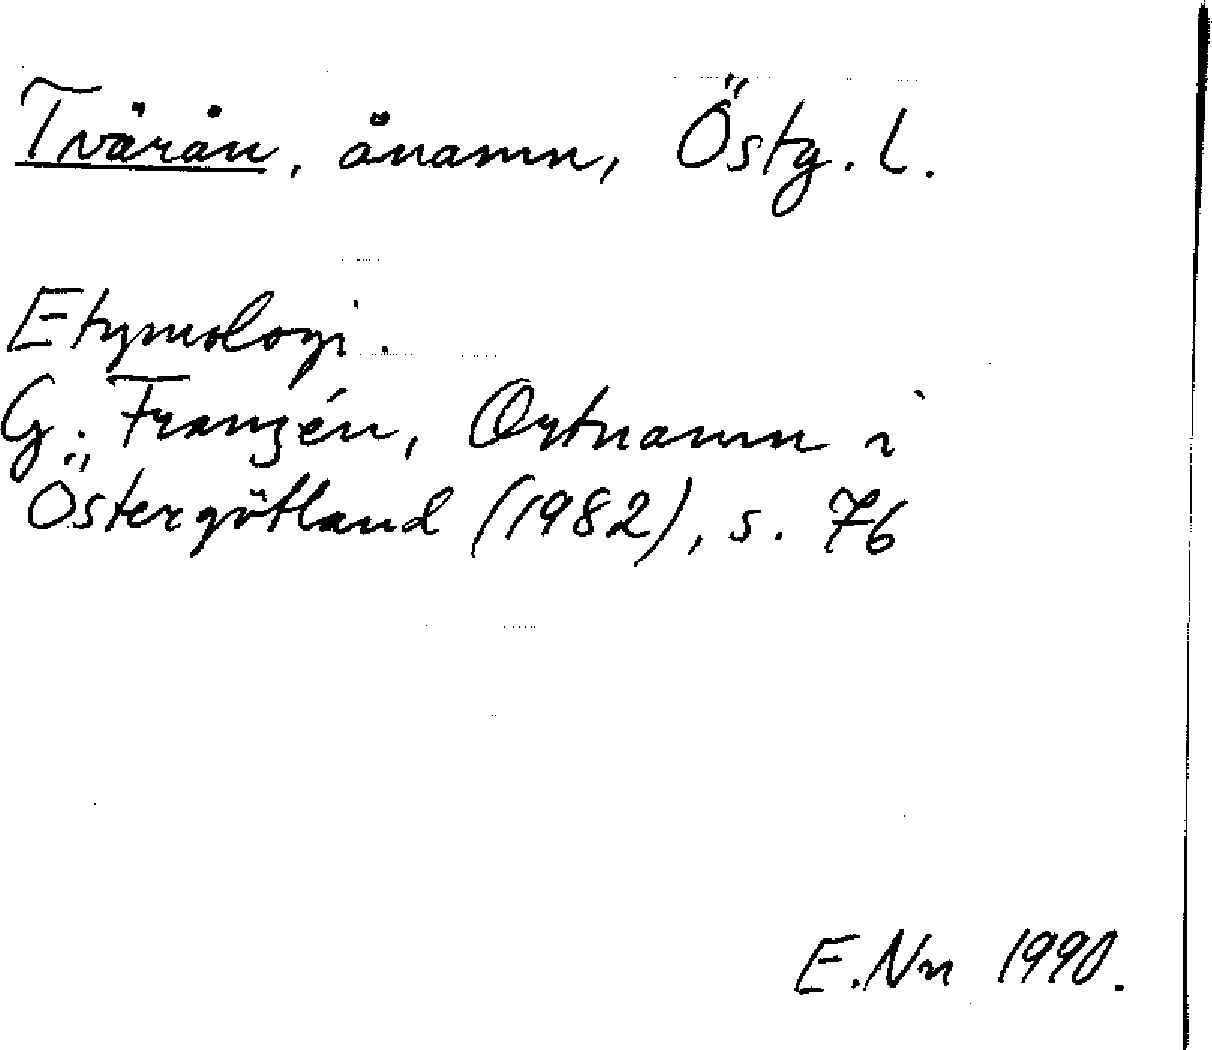 Tvärån, ånamn, Östg. l.
Etymologi.
G. Franzén, Ortnamn i
Östergötland (1982), s. 76
E.Nn 1990.